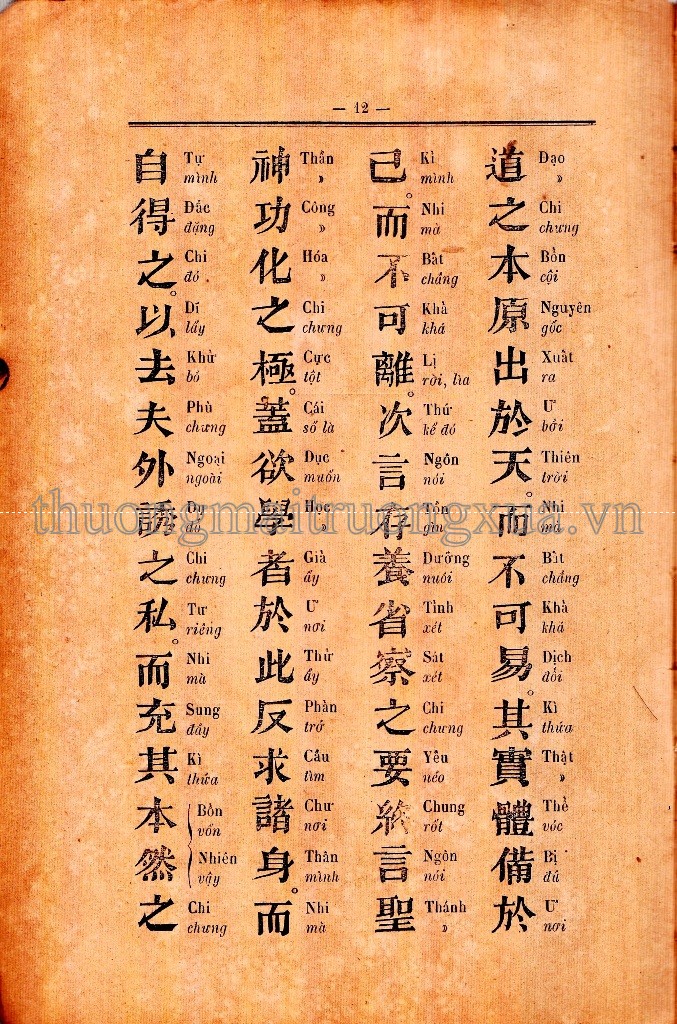 — 12 —
道 Đạo »
之 Chi chưng
本 Bổn cội
原 Nguyên gốc
出 Xuất ra
於 Ư bởi
天 Thiên trời
而 Nhi mà
不 Bất chẳng
可 Khả khá
易。 Dịch đổi
其 Kì thửa
實 Thật »
體 Thể vóc
備 Bị đủ
於 Ư nơi
己。 Kỉ mình
而 Nhi mà
不 Bất chẳng
可 Khả khá
離。 Lị rời, lìa
次 Thứ kế đó
言 Ngôn nói
存 Tồn gìn
養 Dưỡng nuôi
省 Tỉnh xét
察 Sát xét
之 Chi chưng
要 Yếu néo
終 Chung rốt
言 Ngôn nói
聖 Thánh »
神 Thần »
功 Công »
化 Hóa »
之 Chi chưng
極。 Cực tột
蓋 Cái số là
欲 Dục muốn
學 Học »
者 Giả ấy
於 Ư nơi
此 Thử ấy
反 Phản trở
求 Cầu tìm
諸 Chư nơi
身。 Thân mình
而 Nhi mà
自 Tự mình
得 Đắc đặng
之。 Chi đó
以 Dĩ lấy
去 Khử bỏ
夫 Phù chưng
外 Ngoại ngoài
誘 Dụ dỗ
之 Chi chưng
私。 Tư riêng
而 Nhi mà
充 Sung đầy
其 Kì thửa
本 Bổn vốn
然 Nhiên vậy
之 Chi chưng
thuongmaitruongxua.vn